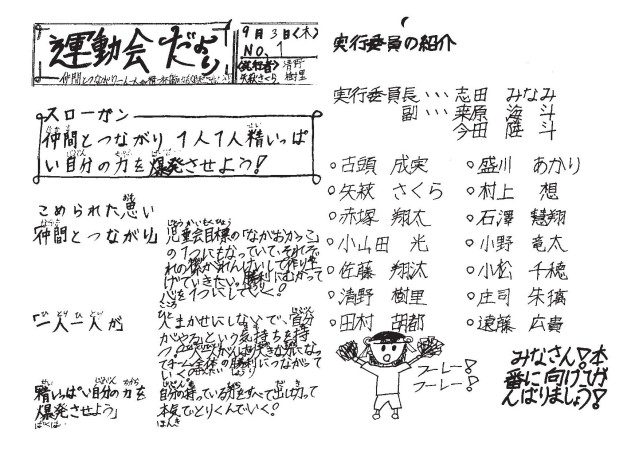 運動会だより
9月3日(木)
NO. 1
(発行者) 清野 樹里
矢萩さくら
スローガン
仲間とつながり 1人1人精いっぱ
い自分の力を爆発させよう!
こめられた思い
「仲間とつながり」
児童会目標の「なかおかっこ」
の1つにもなっていて、それぞ
れの係がれんけいして作り上
げていきたい。勝利にむかって
心を1つにしていく!
「一人一人が
人まかせにしないで、自分
がやるという気持ちを持
つ。一人一人が
てチーム全体の勝利につながって
いく
精いっぱい自分の力を
爆発させよう」
自分の持っている力をすべて出し切って
本気でとりくんでいく!
実行委員の紹介
実行委員長 … 志田 みなみ
副 … 栗原 海斗
今田 陸斗
○古頭 成実
○矢萩 さくら
○赤塚 翔太
○小山田 光
○佐藤 翔汰
○清野 樹里
○田村 胡都
○盛川 あかり
○村上 想
○石澤 慧翔
○小野 竜太
○小松 千穂
○庄司 朱璃
○遠藤 広貴
フーレー!
フーレー!
みなさん!本
番に向けてが
んばりましょう!